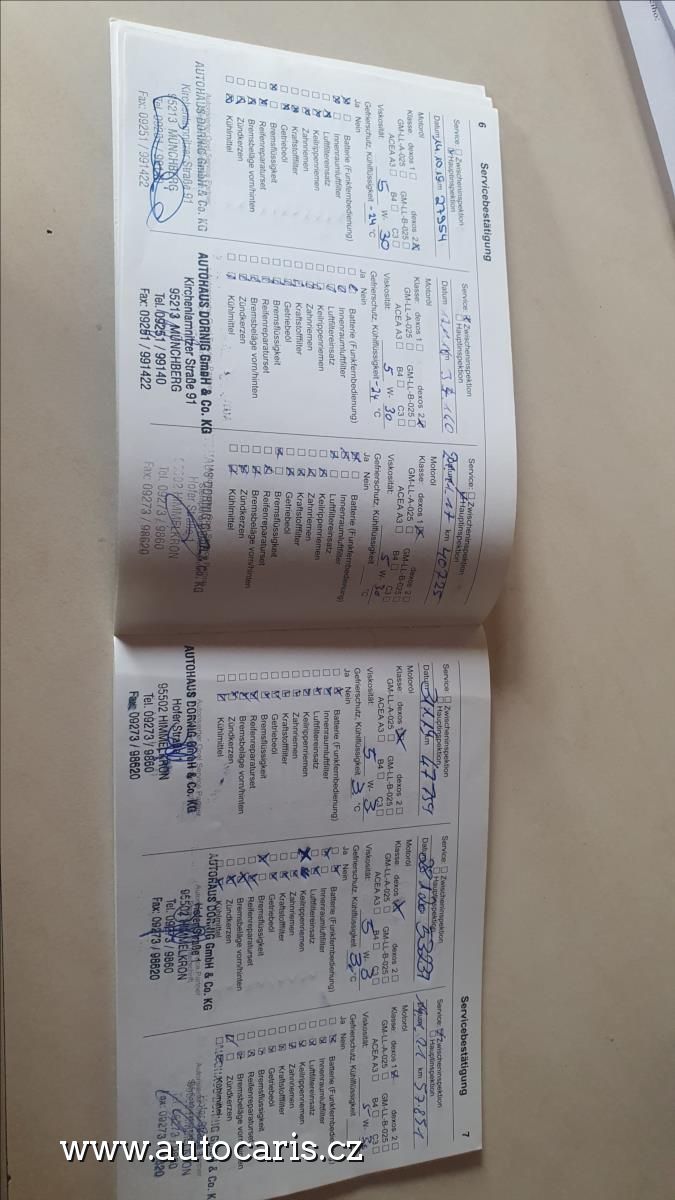 6 Servicebestätigung
Service: Zwischeninspektion
Hauptinspektion
Datum 14.10.15 km 27954
Motoröl
Klasse: dexos 1 dexos 2
GM-LL-A-025 GM-LL-B-025
ACEA A3 B4 C3
Viskosität: 5 W- 30
Gefrierschutz, Kühlflüssigkeit -24 °C
Ja Nein
Batterie (Funkfernbedienung)
Innenraumluftfilter
Luftfiltereinsatz
Keilrippenriemen
Zahnriemen
Kraftstofffilter
Getriebeöl
Bremsflüssigkeit
Reifenreparaturset
Bremsbeläge vorn/hinten
Zündkerzen
Kühlmittel
AUTOHAUS DORNIG GmbH & Co. KG
Kirchenlamnitzer Straße 91
95213 MÜNCHBERG
Tel. 09251 / 99140
Fax: 09251 / 991422
Service: Zwischeninspektion
Hauptinspektion
Datum km 37160
Motoröl
Klasse: dexos 1 dexos 2
GM-LL-A-025 GM-LL-B-025
ACEA A3 B4 C3
Viskosität: 5 W- 30
Gefrierschutz, Kühlflüssigkeit -24 °C
Ja Nein
Batterie (Funkfernbedienung)
Innenraumluftfilter
Luftfiltereinsatz
Keilrippenriemen
Zahnriemen
Kraftstofffilter
Getriebeöl
Bremsflüssigkeit
Reifenreparaturset
Bremsbeläge vorn/hinten
Zündkerzen
Kühlmittel
AUTOHAUS DORNIG GmbH & Co. KG
Kirchenlamnitzer Straße 91
95213 MÜNCHBERG
Tel. 09251 / 99140
Fax: 09251 / 991422
Service: Zwischeninspektion
Hauptinspektion
Datum km 40725
Motoröl
Klasse: dexos 1 dexos 2
GM-LL-A-025 GM-LL-B-025
ACEA A3 B4 C3
Viskosität: 5 W- 30
Gefrierschutz, Kühlflüssigkeit °C
Ja Nein
Batterie (Funkfernbedienung)
Innenraumluftfilter
Luftfiltereinsatz
Keilrippenriemen
Zahnriemen
Kraftstofffilter
Getriebeöl
Bremsflüssigkeit
Reifenreparaturset
Bremsbeläge vorn/hinten
Zündkerzen
Kühlmittel
HAUS DORNIG GmbH & Co. KG
Hofer Straße
HIMMELKRON
Tel. 09273 / 9860
Fax: 09273 / 98620
Servicebestätigung 7
Service: Zwischeninspektion
Hauptinspektion
Datum km 47739
Motoröl
Klasse: dexos 1 dexos 2
GM-LL-A-025 GM-LL-B-025
ACEA A3 B4 C3
Viskosität: 5 W- 3
Gefrierschutz, Kühlflüssigkeit °C
Ja Nein
Batterie (Funkfernbedienung)
Innenraumluftfilter
Luftfiltereinsatz
Keilrippenriemen
Zahnriemen
Kraftstofffilter
Getriebeöl
Bremsflüssigkeit
Reifenreparaturset
Bremsbeläge vorn/hinten
Zündkerzen
Kühlmittel
Autorisierter Opel Service Partner
AUTOHAUS DORNIG GmbH & Co. KG
Hofer Straße 1
95502 HIMMELKRON
Tel. 09273 / 9860
Fax: 09273 / 98620
Service: Zwischeninspektion
Hauptinspektion
Datum km
Motoröl
Klasse: dexos dexos 2
GM-LL-A-025 GM-LL-B-025
ACEA A3 B4 C3
Viskosität: 5 W- 3
Gefrierschutz, Kühlflüssigkeit °C
Ja Nein
Batterie (Funkfernbedienung)
Innenraumluftfilter
Luftfiltereinsatz
Keilrippenriemen
Zahnriemen
Kraftstofffilter
Getriebeöl
Bremsflüssigkeit
Reifenreparaturset
Bremsbeläge vorn/hinten
Zündkerzen
Kühlmittel
AUTOHAUS DORNIG GmbH & Co. KG
Hofer Straße 1
95502 HIMMELKRON
Tel. 09273 / 9860
Fax: 09273 / 98620
Service: Zwischeninspektion
Hauptinspektion
km 57851
Motoröl
Klasse: dexos 1 dexos 2
GM-LL-A-025 GM-LL-B-025
ACEA A3 B4 C3
Viskosität: 5 W-
Gefrierschutz, Kühlflüssigkeit °C
Ja Nein
Batterie (Funkfernbedienung)
Innenraumluftfilter
Luftfiltereinsatz
Keilrippenriemen
Zahnriemen
Kraftstofffilter
Getriebeöl
Bremsflüssigkeit
Reifenreparaturset
Bremsbeläge vorn/hinten
Zündkerzen
Kühlmittel
Fax: 09273 / 98620
www.autocaris.cz